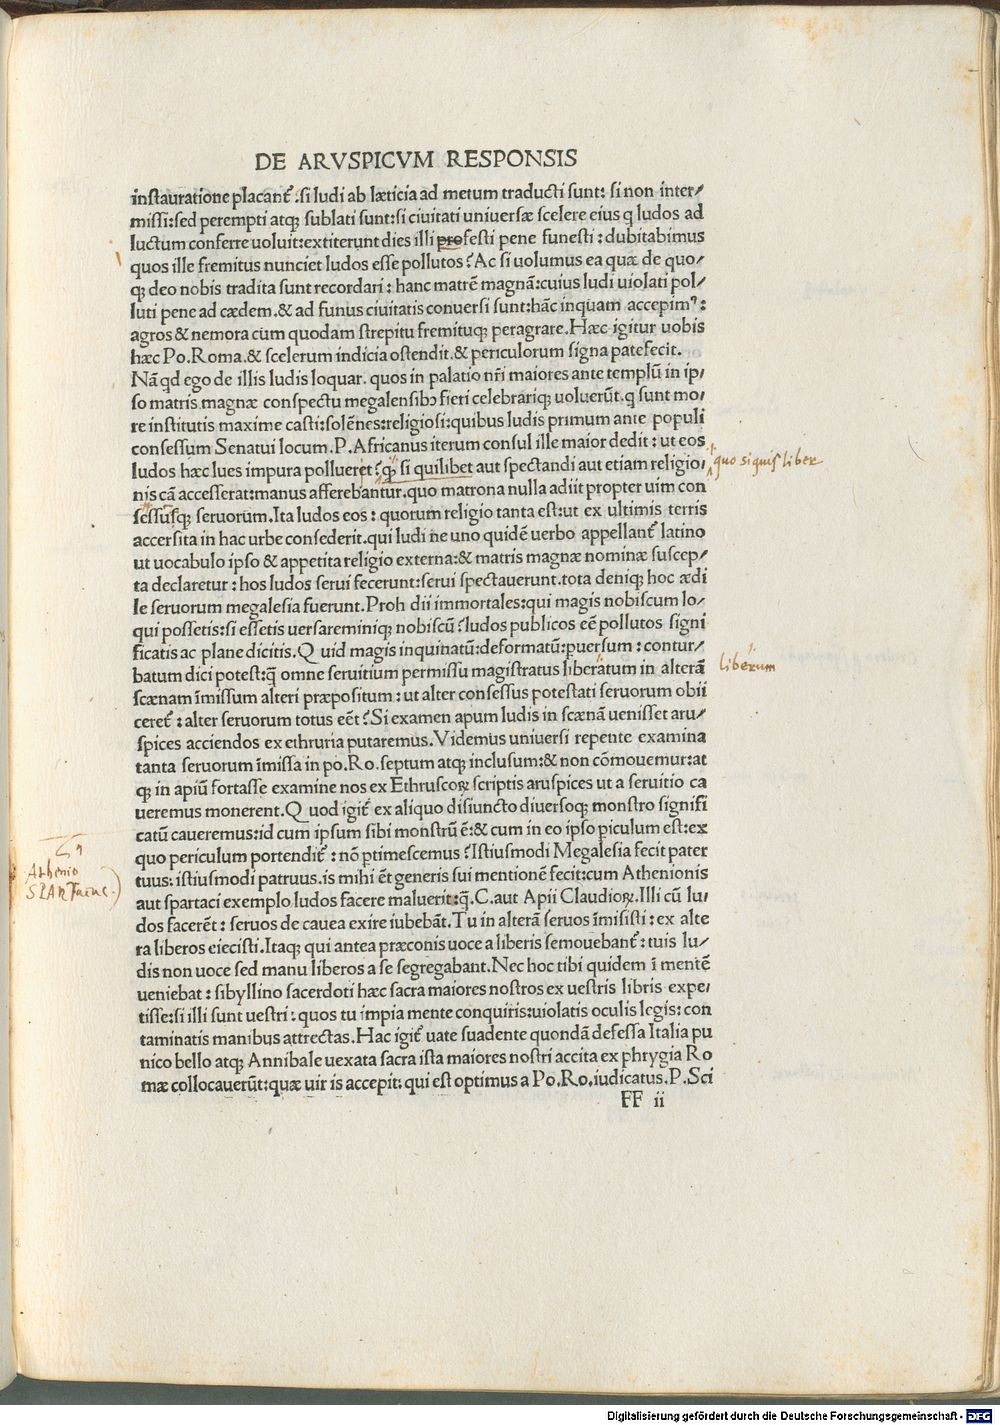 DE ARVSPICVM RESPONSIS
instauratione placant᷑ .si ludi ab læticia ad metum traducti sunt: si non inter⸗
missi:sed perempti atq; sublati sunt:si ciuitati uniuersæ scelere eius q ludos ad
luctum conferre uoluit:extiterunt dies illi profesti pene funesti : dubitabimus
quos ille fremitus nunciet ludos esse pollutos?Ac si uolumus ea quæ de quo⸗
q; deo nobis tradita sunt recordari : hanc matrē magnā:cuius ludi uiolati pol⸗
luti pene ad cædem.& ad funus ciuitatis conuersi sunt:hāc inquam accepimꝰ:
agros & nemora cum quodam strepitu fremituq; peragrare.Hæc igitur uobis
hæc Po.Roma.& scelerum indicia ostendit.& periculorum signa patefecit.
Nā qd ego de illis ludis loquar. quos in palatio nr̄i maiores ante templū in ip⸗
so matris magnæ conspectu megalensibꝰ fieri celebrariq; uoluerūt.q sunt mo⸗
re institutis maxime casti:solēnes:religiosi:quibus ludis primum ante populi
consessum Senatui locum.P.Africanus iterum consul ille maior dedit : ut eos
ludos hæc lues impura pollueret?q; si quilibet aut spectandi aut etiam religio⸗
quo siquis liber
nis cā accesserat:manus afferebantur.quo matrona nulla adiit propter uim con
sessusq; seruorum.Ita ludos eos : quorum religio tanta est:ut ex ultimis terris
accersita in hac urbe consederit.qui ludi ne uno quidē uerbo appellant᷑ latino
ut uocabulo ipso & appetita religio externa:& matris magnæ nominæ suscep⸗
ta declaretur : hos ludos serui fecerunt:serui spectauerunt.tota deniq; hoc ædi
le seruorum megalesia fuerunt.Proh dii immortales:qui magis nobiscum lo⸗
qui possetis:si essetis uersareminiq; nobiscū?ludos publicos eē pollutos signi
ficatis ac plane dicitis.Quid magis inquinatū:deformatū:puersum : contur⸗
batum dici potest:q̄ omne seruitium permissu magistratus liberatum in alterā
liberum
scænam īmissum alteri præpositum : ut alter consessus potestati seruorum obii
ceret᷑ : alter seruorum totus eēt?Si examen apum ludis in scænā uenisset aru⸗
spices acciendos ex ethruria putaremus.Videmus uniuersi repente examina
tanta seruorum īmissa in po.Ro.septum atq; inclusum:& non cōmouemur:at
q; in apiū fortasse examine nos ex Ethruscoꝝ scriptis aruspices ut a seruitio ca
ueremus monerent.Quod igit᷑ ex aliquo disiuncto diuersoq; monstro signifi
catū caueremus:id cum ipsum sibi monstrū ē:& cum in eo ipso piculum est:ex
quo periculum portendit᷑ : nō ptimescemus?Istiusmodi Megalesia fecit pater
tuus: istiusmodi patruus.is mihi ēt generis sui mentionē fecit:cum Athenionis
Athenio
SPARTacus.
aut spartaci exemplo ludos facere maluerit:q̄.C.aut Apii Claudioꝝ.Illi cū lu⸗
dos facerēt : seruos de cauea exire iubebāt.Tu in alterā seruos īmisisti : ex alte
ra liberos eiecisti.Itaq; qui antea præconis uoce a liberis semouebant᷑ : tuis lu⸗
dis non uoce sed manu liberos a se segregabant.Nec hoc tibi quidem ī mentē
ueniebat : sibyllino sacerdoti hæc sacra maiores nostros ex uestris libris expe⸗
tisse:si illi sunt uestri : quos tu impia mente conquiris:uiolatis oculis legis: con
taminatis manibus attrectas.Hac igit᷑ uate suadente quondā defessa Italia pu
nico bello atq; Annibale uexata sacra ista maiores nostri accita ex phrygia Ro
mæ collocauerūt:quæ uir is accepit: qui est optimus a Po.Ro.iudicatus.P.Sci
FF ii
Digitalisierung gefördert durch die Deutsche Forschungsgemeinschaft - DFG